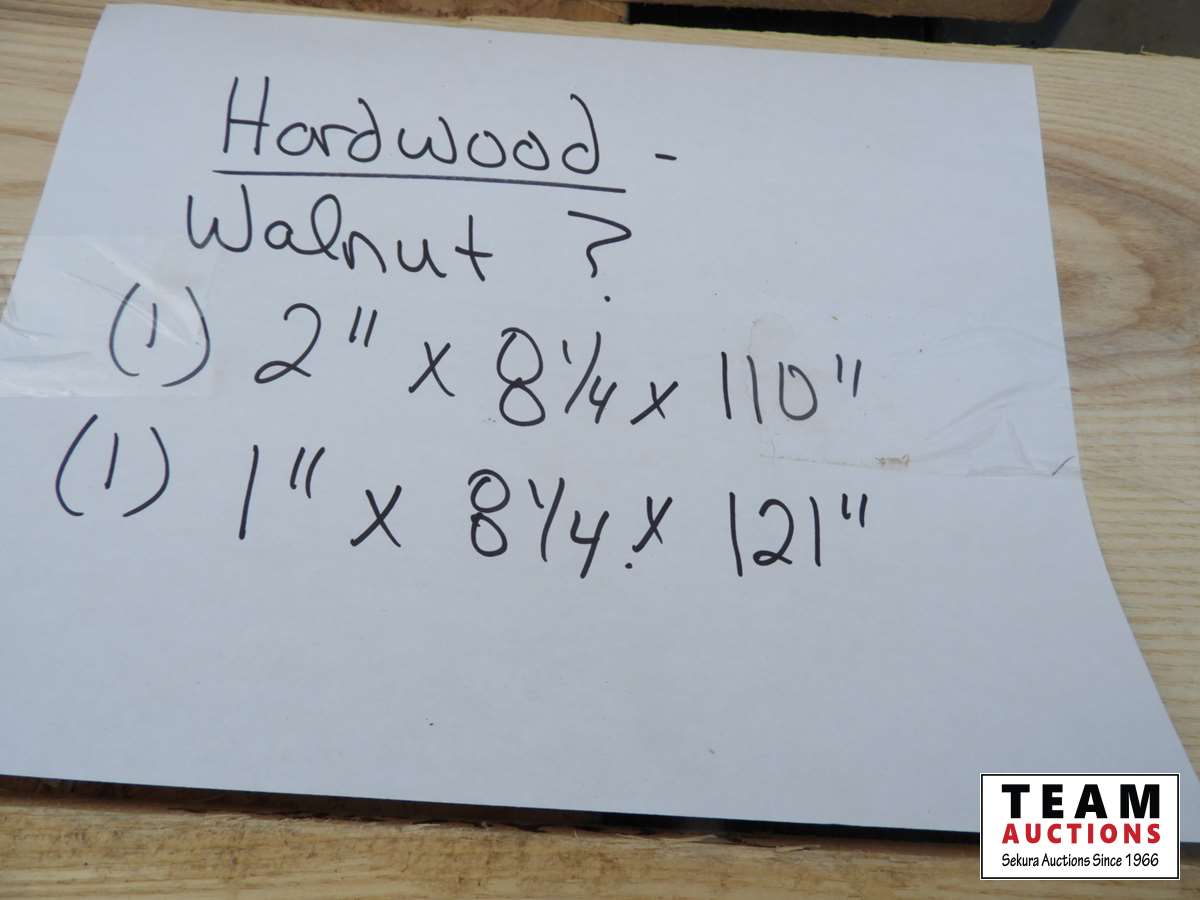 Hardwood -
Walnut ?
(1) 2" x 8 1/4 x 110"
(1) 1" x 8 1/4 x 121"
TEAM
AUCTIONS
Sekura Auctions Since 1966